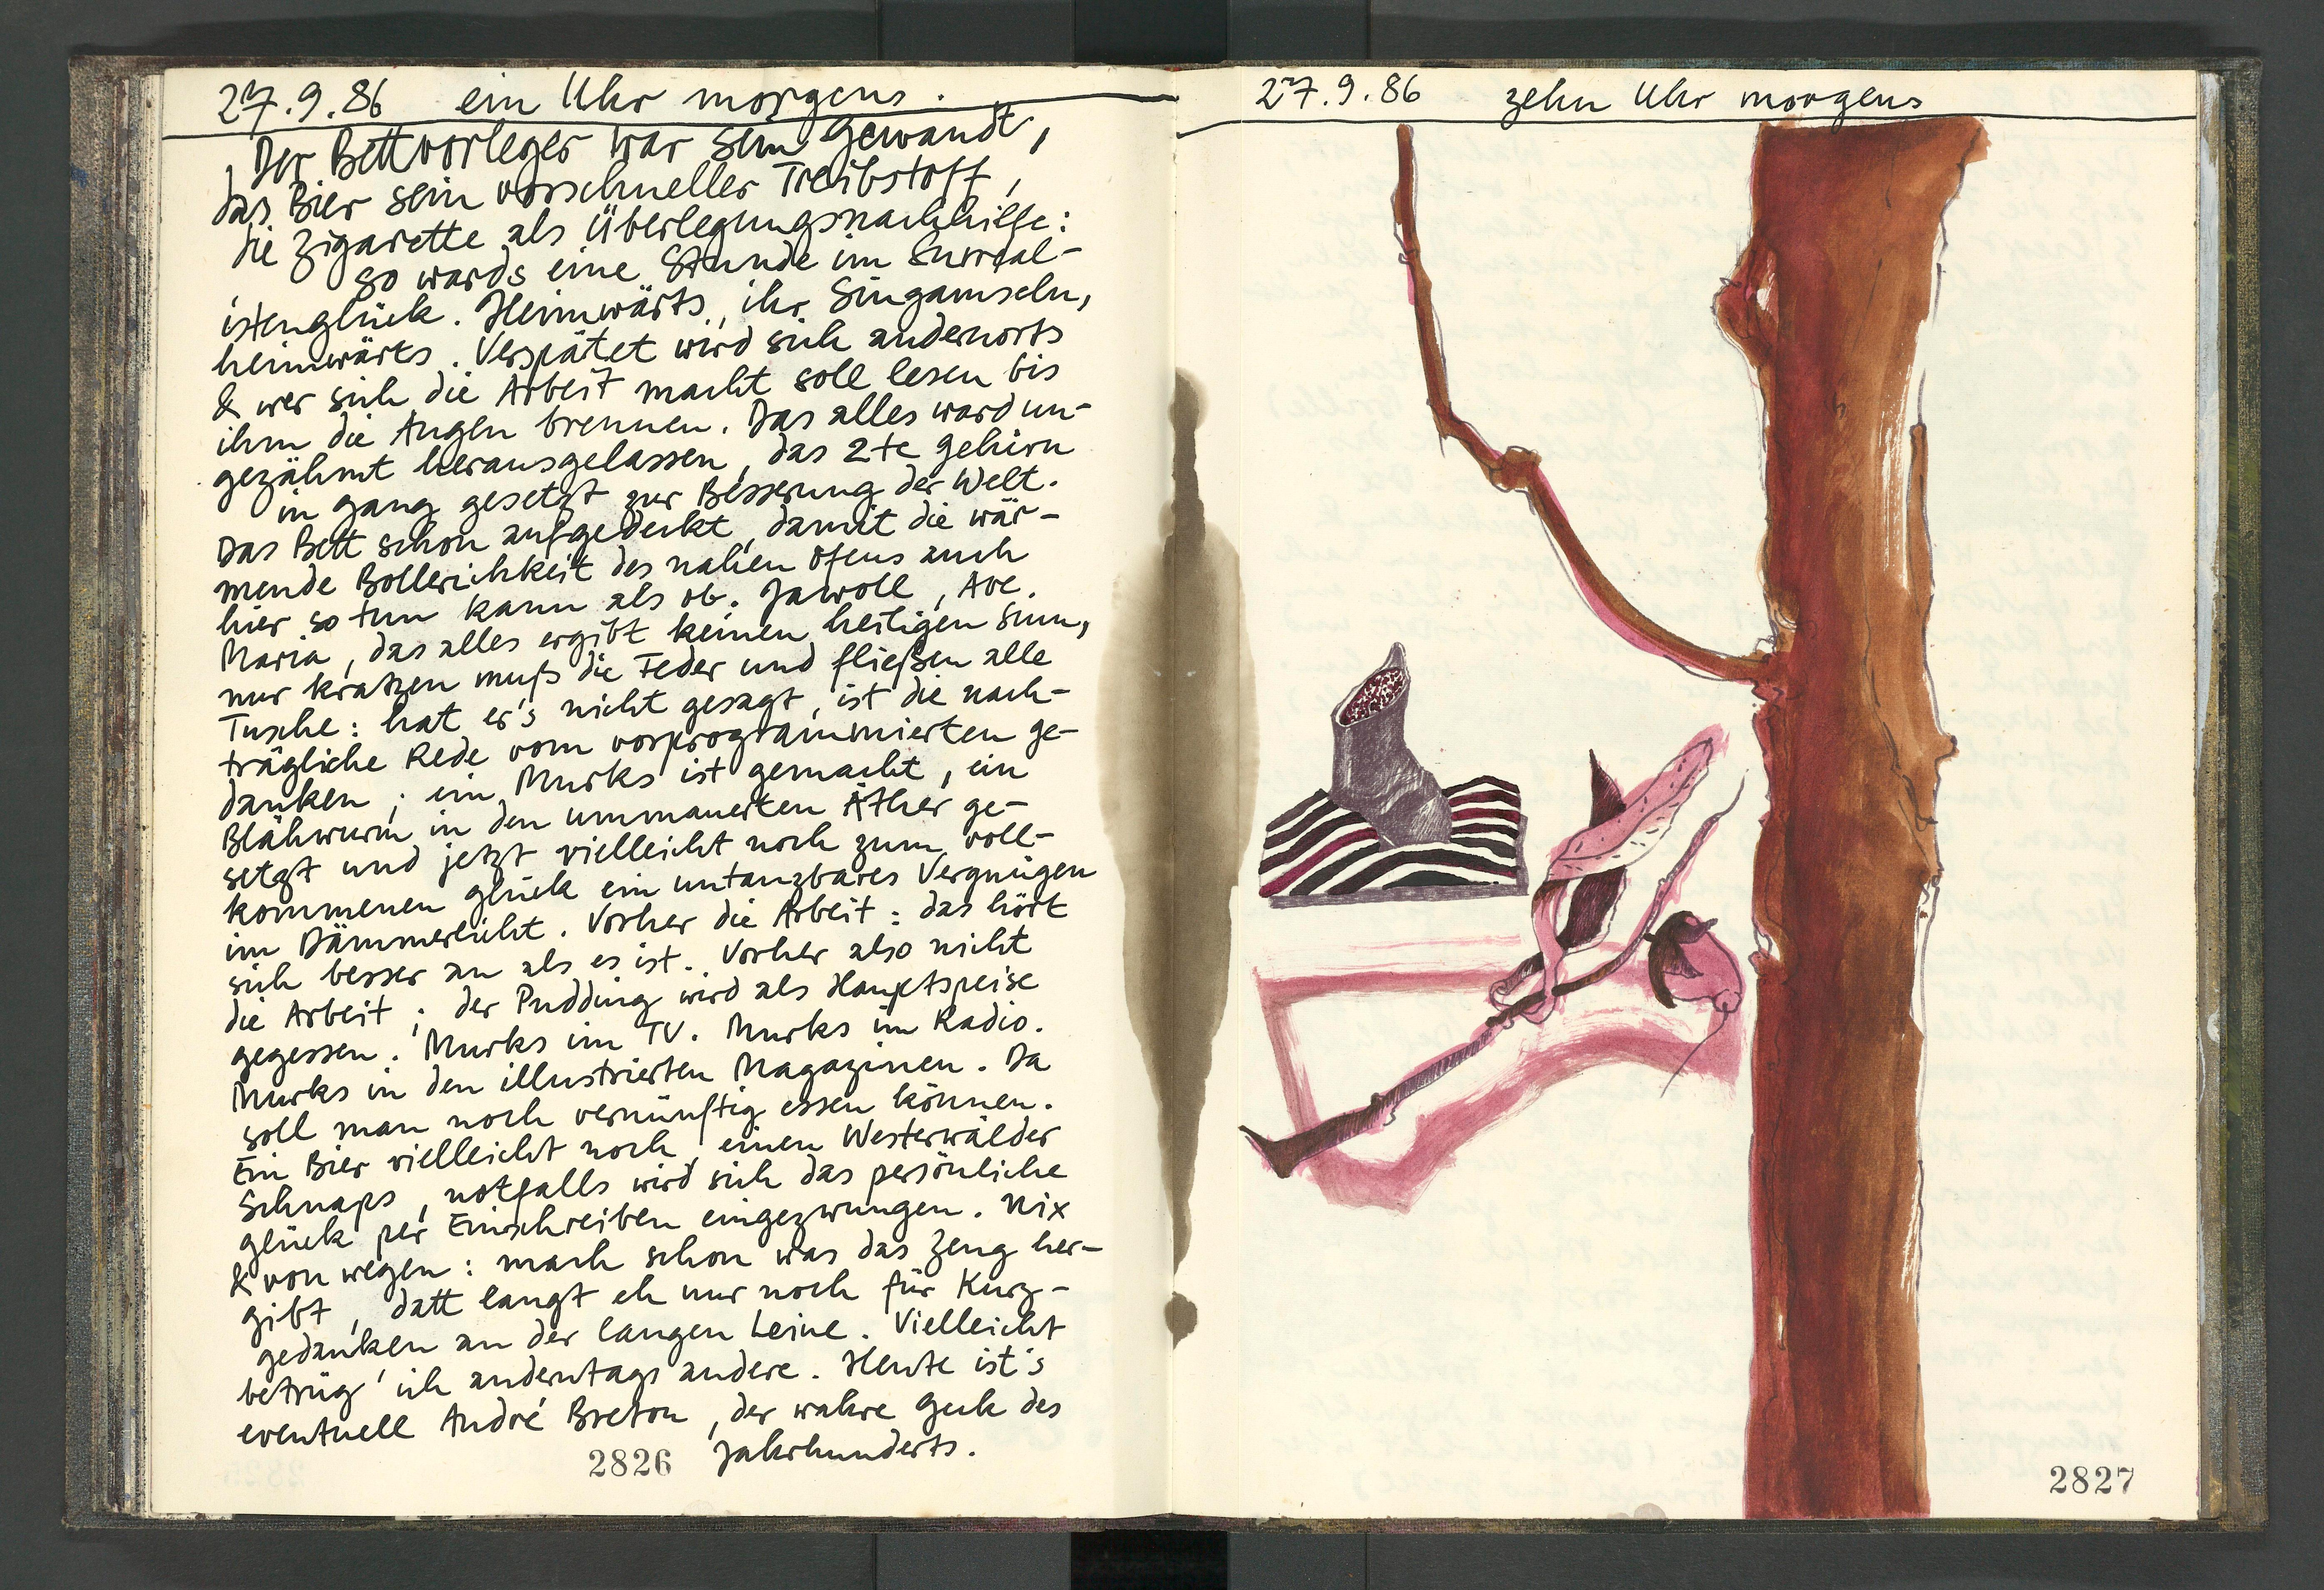 27.9.86 ein Uhr morgens.
Der Bettvorleger war sein Gewandt,
das Bier sein vorschneller Treibstoff,
die Zigarette als Überlegungsnachhilfe:
so wards eine Stunde im Surreal-
istenglück. Heimwärts, ihr Singamseln,
heimwärts. Verspätet wird sich andernorts
& wer sich die Arbeit macht soll lesen bis
ihm die Augen brennen. Das alles ward un-
gezähmt herausgelassen, das 2te Gehirn
in gang gesetzt zur Besserung der Welt.
Das Bett schon aufgedeckt, damit die wär-
mende Bollerichkeit des nahen Ofens auch
hier so tun kann als ob. Jawoll, Ave.
Maria, das alles ergibt keinen heiligen Sinn,
nur kratzen muß die Feder und fließen alle
Tusche: hat er's nicht gesagt, ist die nach-
trägliche Rede vom vorprogrammierten ge-
danken; ein Murks ist gemacht, ein
Blähwurm in den ummauerten Äther ge-
setzt und jetzt vielleicht noch zum voll-
kommenen glück ein untanzbares Vergnügen
im Dämmerlicht. Vorher die Arbeit: das hört
sich besser an als es ist. Vorher also nicht
die Arbeit; der Pudding wird als Hauptspeise
gegessen. Murks im TV. Murks im Radio.
Murks in den illustrierten Magazinen. Da
soll man noch vernünftig essen können.
Ein Bier vielleicht noch, einen Westerwälder
Schnaps, notfalls wird sich das persönliche
glück per Einschreiben eingezwungen. Nix
& von wegen: mach schon was das Zeug her-
gibt, datt langt eh nur noch für Kurz-
gedanken an der langen Leine. Vielleicht
betrüg' ich anderntags andere. Heute ist's
eventuell André Breton, der wahre Geck des
Jahrhunderts.
2826
27.9.86 zehn Uhr morgens
2827